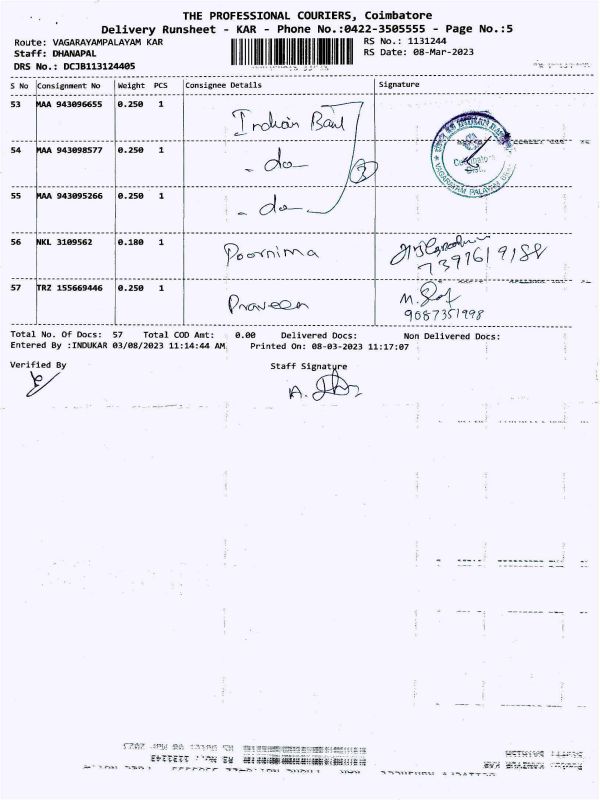 THE PROFESSIONAL COURIERS, Coimbatore
Delivery Runsheet - KAR - Phone No.:0422-3505555 - Page No.:5
Route: VAGARAYAMPALAYAM KAR
RS No.: 1131244
Staff: DHANAPAL
RS Date: 08-Mar-2023
DRS No.: DCJB113124405
S No Consignment No Weight PCS Consignee Details Signature
53 MAA 943096655 0.250 1 Indian Bank
54 MAA 943098577 0.250 1 - do - 3
55 MAA 943095266 0.250 1 - do -
56 NKL 3109562 0.180 1 Poornima 7397619188
57 TRZ 155669446 0.250 1 Praveen 9087351998
Total No. Of Docs: 57 Total COD Amt: 0.00 Delivered Docs: Non Delivered Docs:
Entered By :INDUKAR 03/08/2023 11:14:44 AM Printed On: 08-03-2023 11:17:07
Verified By Staff Signature